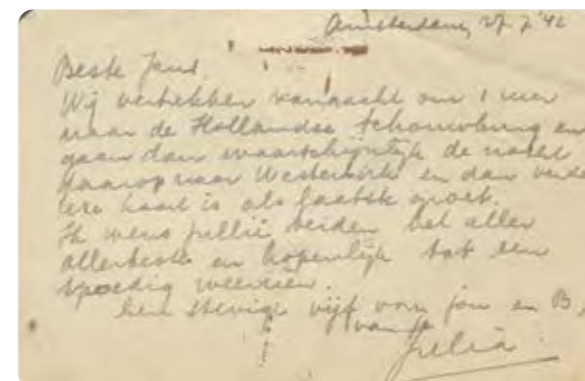 Amsterdam, 27.7.'42
Beste Jans.
Wij vertrekken vannacht om 1 uur
naar de Hollandse Schouwburg en
gaan dan waarschijnlijk de nacht
daarop naar Westerbork en dan verde
kaart is als laatste groet.
Ik wens jullie beiden het aller
allerbeste en hopelijk tot een
spoedig weerzien.
Een stevige vijf voor jou en B,
van
Julia